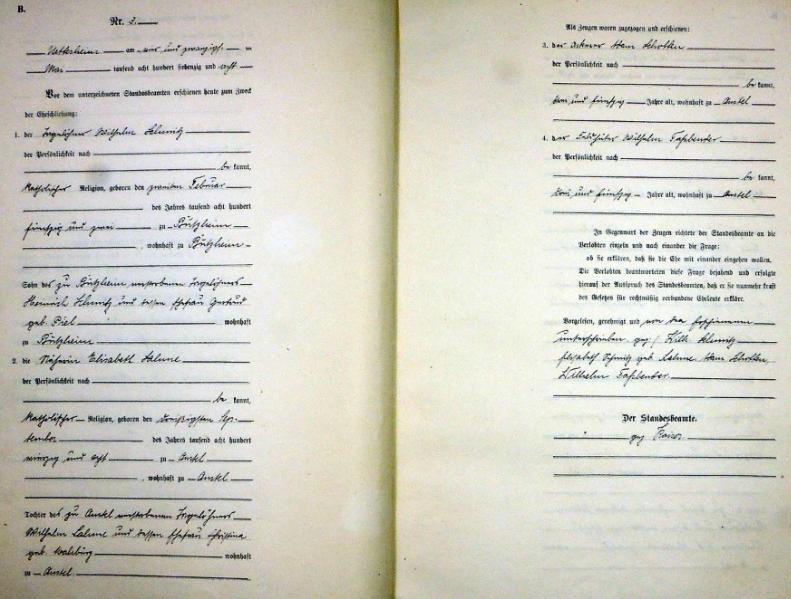 B.
Nr. 3.
Nettesheim am vier und zwanzigsten
Mai tausend acht hundert siebenzig und acht
Vor dem unterzeichneten Standesbeamten erschienen heute zum Zweck
der Eheschließung:
1. der Tagelöhner Wilhelm Schmitz
der Persönlichkeit nach
be kannt,
katholischer Religion, geboren den zweiten Februar
des Jahres tausend acht hundert
fünfzig und zwei zu Bützheim
, wohnhaft zu Bützheim
Sohn des zu Bützheim verstorbenen Tagelöhners
Heinrich Schmitz und dessen Ehefrau Gertrud
geb. Piel wohnhaft
zu Bützheim
2. die Näherin Elisabeth
der Persönlichkeit nach
be kannt,
katholischer Religion, geboren den dreißigsten Sep-
tember des Jahres tausend acht hundert
vierzig und acht zu Anstel
, wohnhaft zu Anstel
Tochter des zu Anstel verstorbenen Tagelöhners
Wilhelm und dessen Ehefrau Christina
geb. wohnhaft
zu Anstel
Als Zeugen waren zugezogen und erschienen:
3. der Ackerer Ham
der Persönlichkeit nach
be kannt,
und fünfzig Jahre alt, wohnhaft zu Anstel
4. der Feldhüter Wilhelm Faßbender
der Persönlichkeit nach
be kannt,
und fünfzig Jahre alt, wohnhaft zu Anstel
In Gegenwart der Zeugen richtete der Standesbeamte an die
Verlobten einzeln und nach einander die Frage:
ob sie erklären, daß sie die Ehe mit einander eingehen wollen.
Die Verlobten beantworteten diese Frage bejahend und erfolgte
hierauf der Ausspruch des Standesbeamten, daß er sie nunmehr kraft
des Gesetzes für rechtmäßig verbundene Eheleute erkläre.
Vorgelesen, genehmigt und von den Erschienenen
unterschrieben gez. Wilh. Schmitz
Elisabeth Schmitz geb.
Wilhelm Faßbender
Der Standesbeamte.
gez. Kaiser